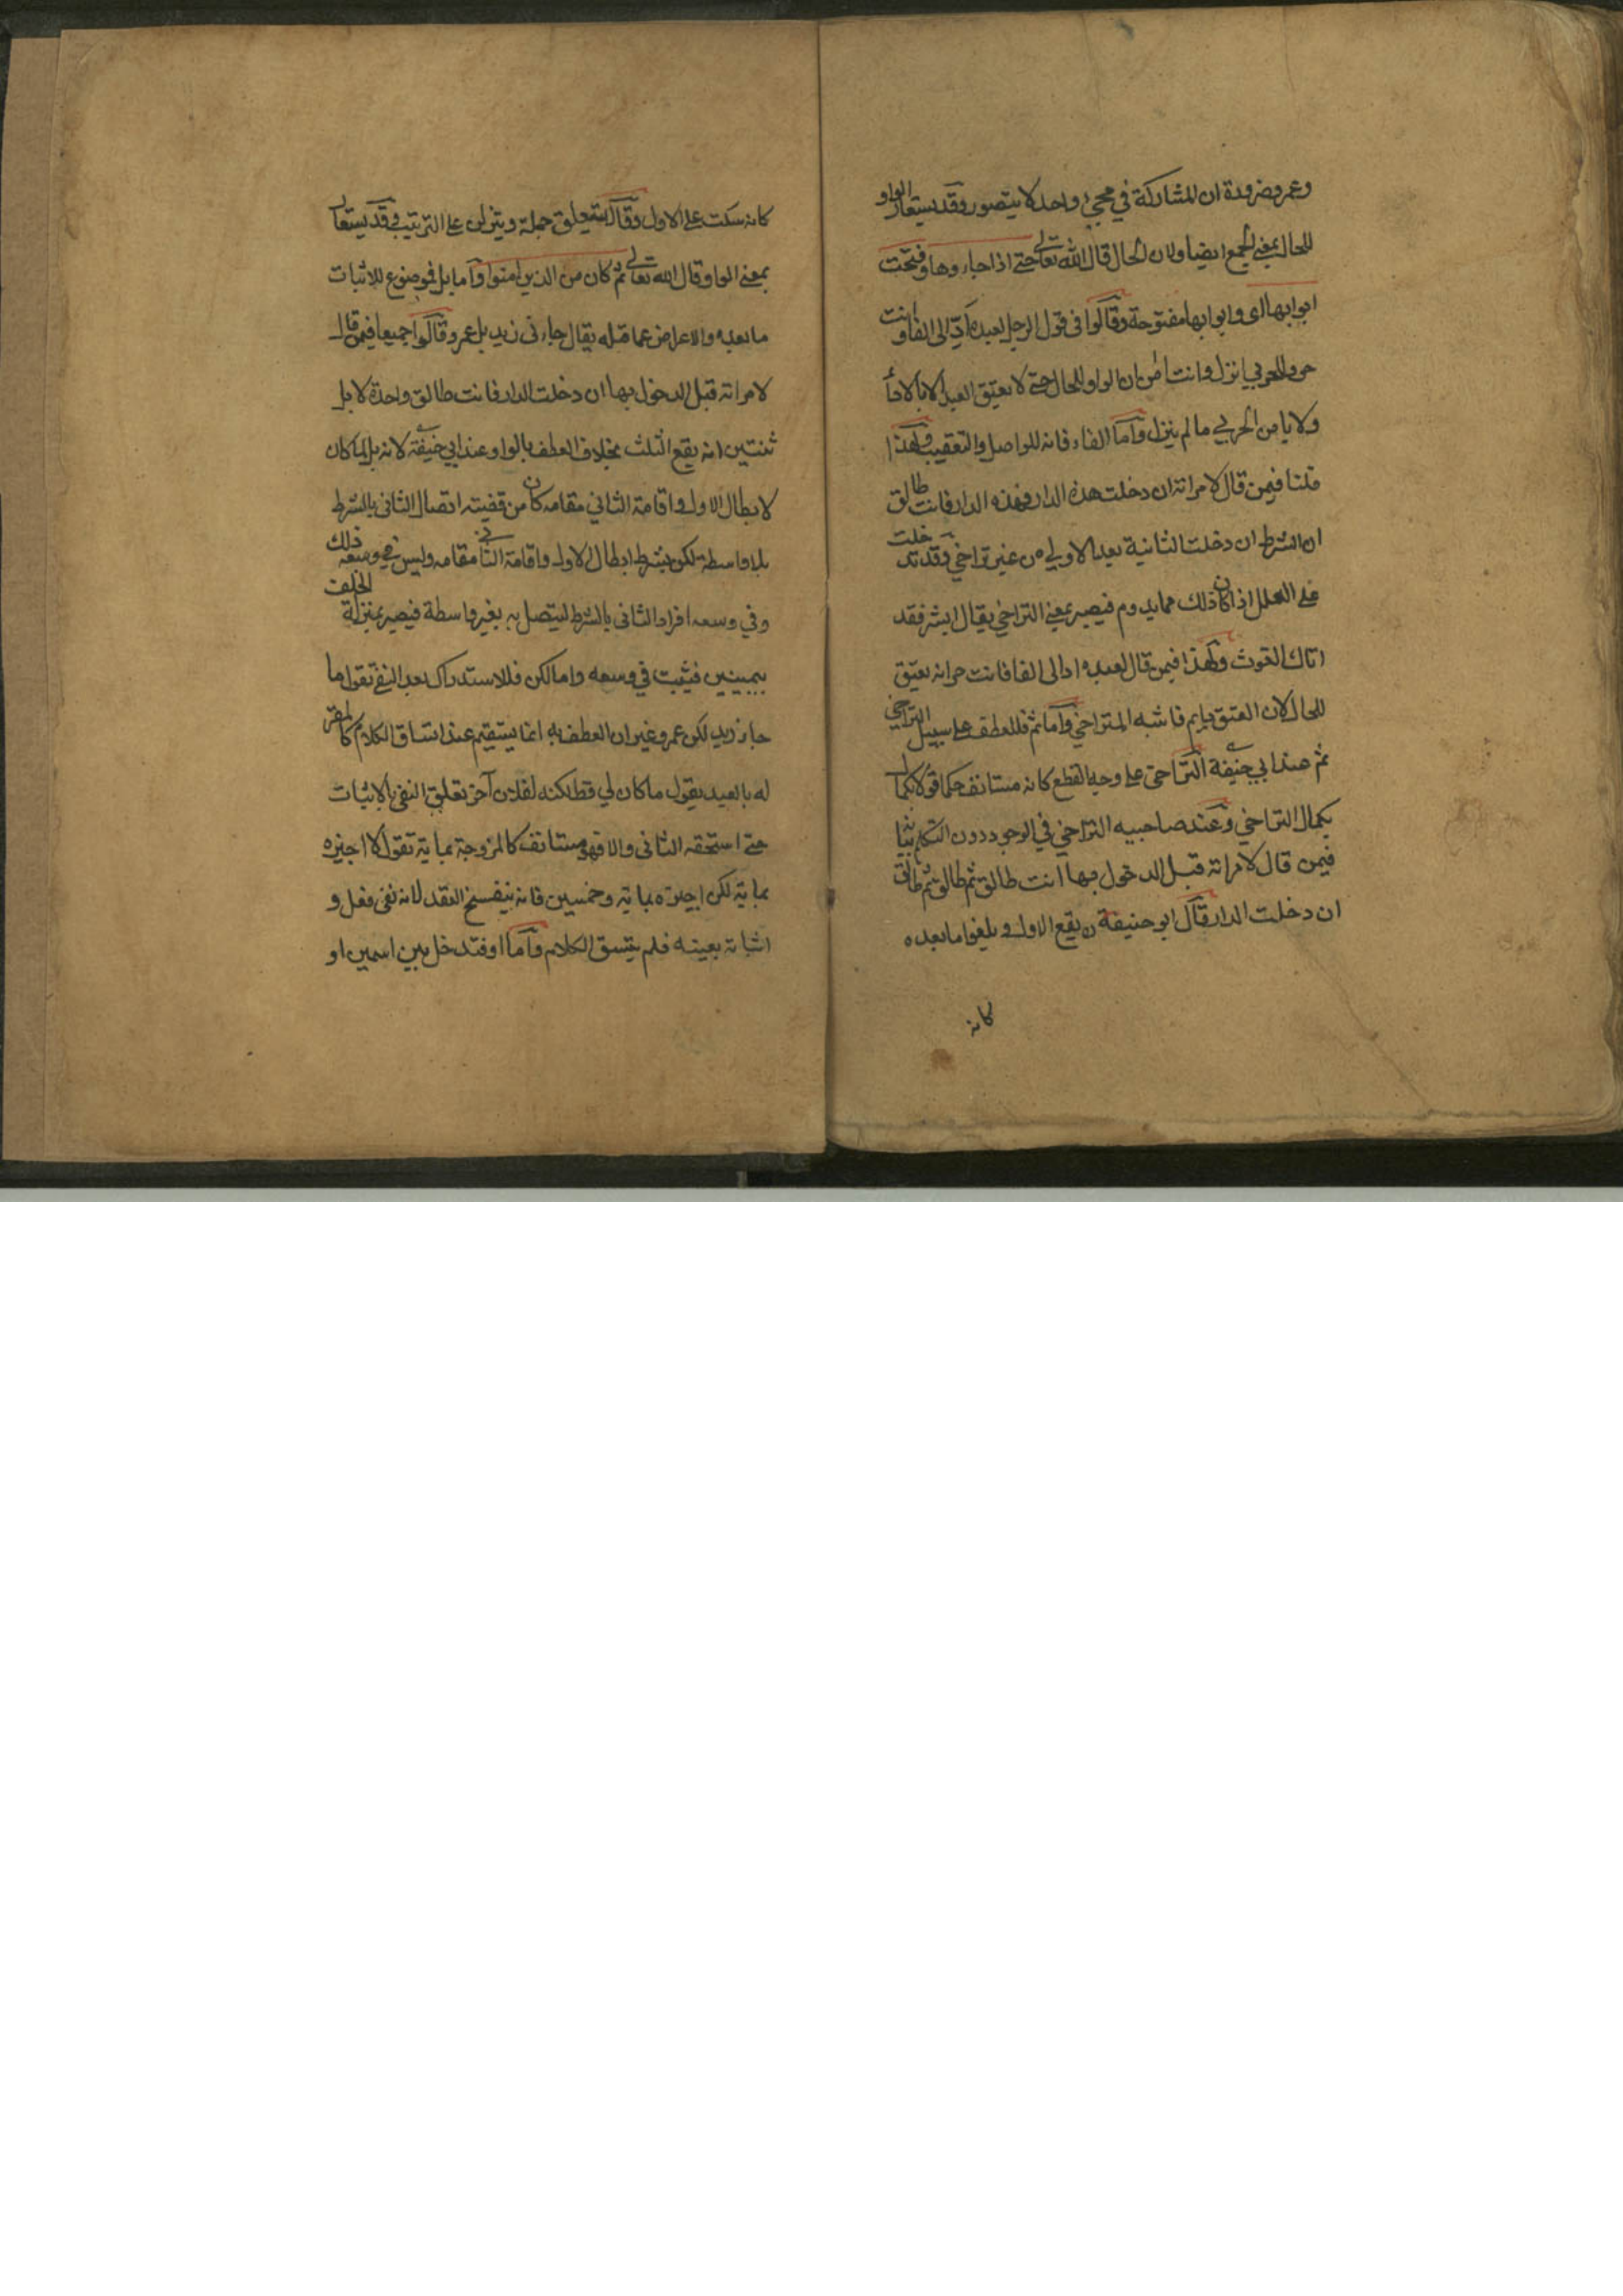 وعمرو ضرورة ان المشاركة في مجيء واحد لا يتصور وقد يستعار الواو
للحال بمعنى الجمع ايضا ولان الحال قال الله تعالى حتى اذا جاءوها وفتحت
ابوابها اى وابوابها مفتوحة وقالوا فى قول الرجل لعبده ادّ الى الفا وانت
حر وللحربي انزل وانت امن ان الواو للحال حتى لا يعتق العبد الا بالاداء
ولا يامن الحربي ما لم ينزل واما الفاء فانه للوصل والتعقيب ولهذا
قلنا فيمن قال لامراته ان دخلت هذه الدار فهذه الدار فانت طالق
ان الشرط ان دخلت الثانية بعد الاولى من غير تراخي وقد تدخلت
على العلل اذا كان ذلك مما يدوم فيصير بمعنى التراخي يقال ابشر فقد
اتاك الغوث ولهذا فيمن قال لعبده اد الى الفا فانت حر انه يعتق
للحال لان العتق دايم فاشبه المتراخي واما ثم فللعطف على سبيل التراخي
ثم عند ابي حنيفة التراخى على وجه القطع كانه مستانف حكما قولا بكمال
بكمال التراخي وعند صاحبيه التراخي في الوجود دون التكلم بيانه
فيمن قال لامراته قبل الدخول بها انت طالق ثم طالق ثم طالق
ان دخلت الدار قال ابو حنيفة يقع الاول ويلغوا ما بعده
كانه
كانه سكت على الاول وقالا يتعلق جملة وينزلن على الترتيب وقد يستعار
بمعنى الواو قال الله تعالى ثم كان من الذين امنوا واما بل فموضوع للاثبات
ما بعده والاعراض عما قبله يقال جاءنى زيد بل عمرو وقالوا جميعا فيمن قال
لامراته قبل الدخول بها ان دخلت الدار فانت طالق واحدة لا بل
ثنتين انه يقع الثلث بخلاف العطف بالواو عند ابي حنيفة لانه بل لما كان
لابطال الاول واقامة الثاني مقامه كان من قضيته اتصال الثانى بالشرط
بلا واسطة لكن بشرط ابطال الاول واقامة الثاني مقامه وليس في وسعه ذلك
وفي وسعه افراد الثانى بالشرط ليتصل به بغير واسطة فيصير بمنزلة الحلف
بيمينين فيثبت في وسعه واما لكن فللاستدراك بعد النفي تقول ما
جاء زيد لكن عمرو غير ان العطف به انما يستقيم عند اتساق الكلام كالمقر
له بالعبد يقول ما كان لي قط لكنه لفلان آخر تعلق النفى بالاثبات
حتى استحقه الثانى والا فهو مستانف كالمزوجة بماية تقول لا اجيزه
بماية لكن اجيزه بماية وخمسين فانه ينفسخ العقد لانه نفى فعل و
اثباته بعينه فلم يتسق الكلام واما او فتدخل بين اسمين او